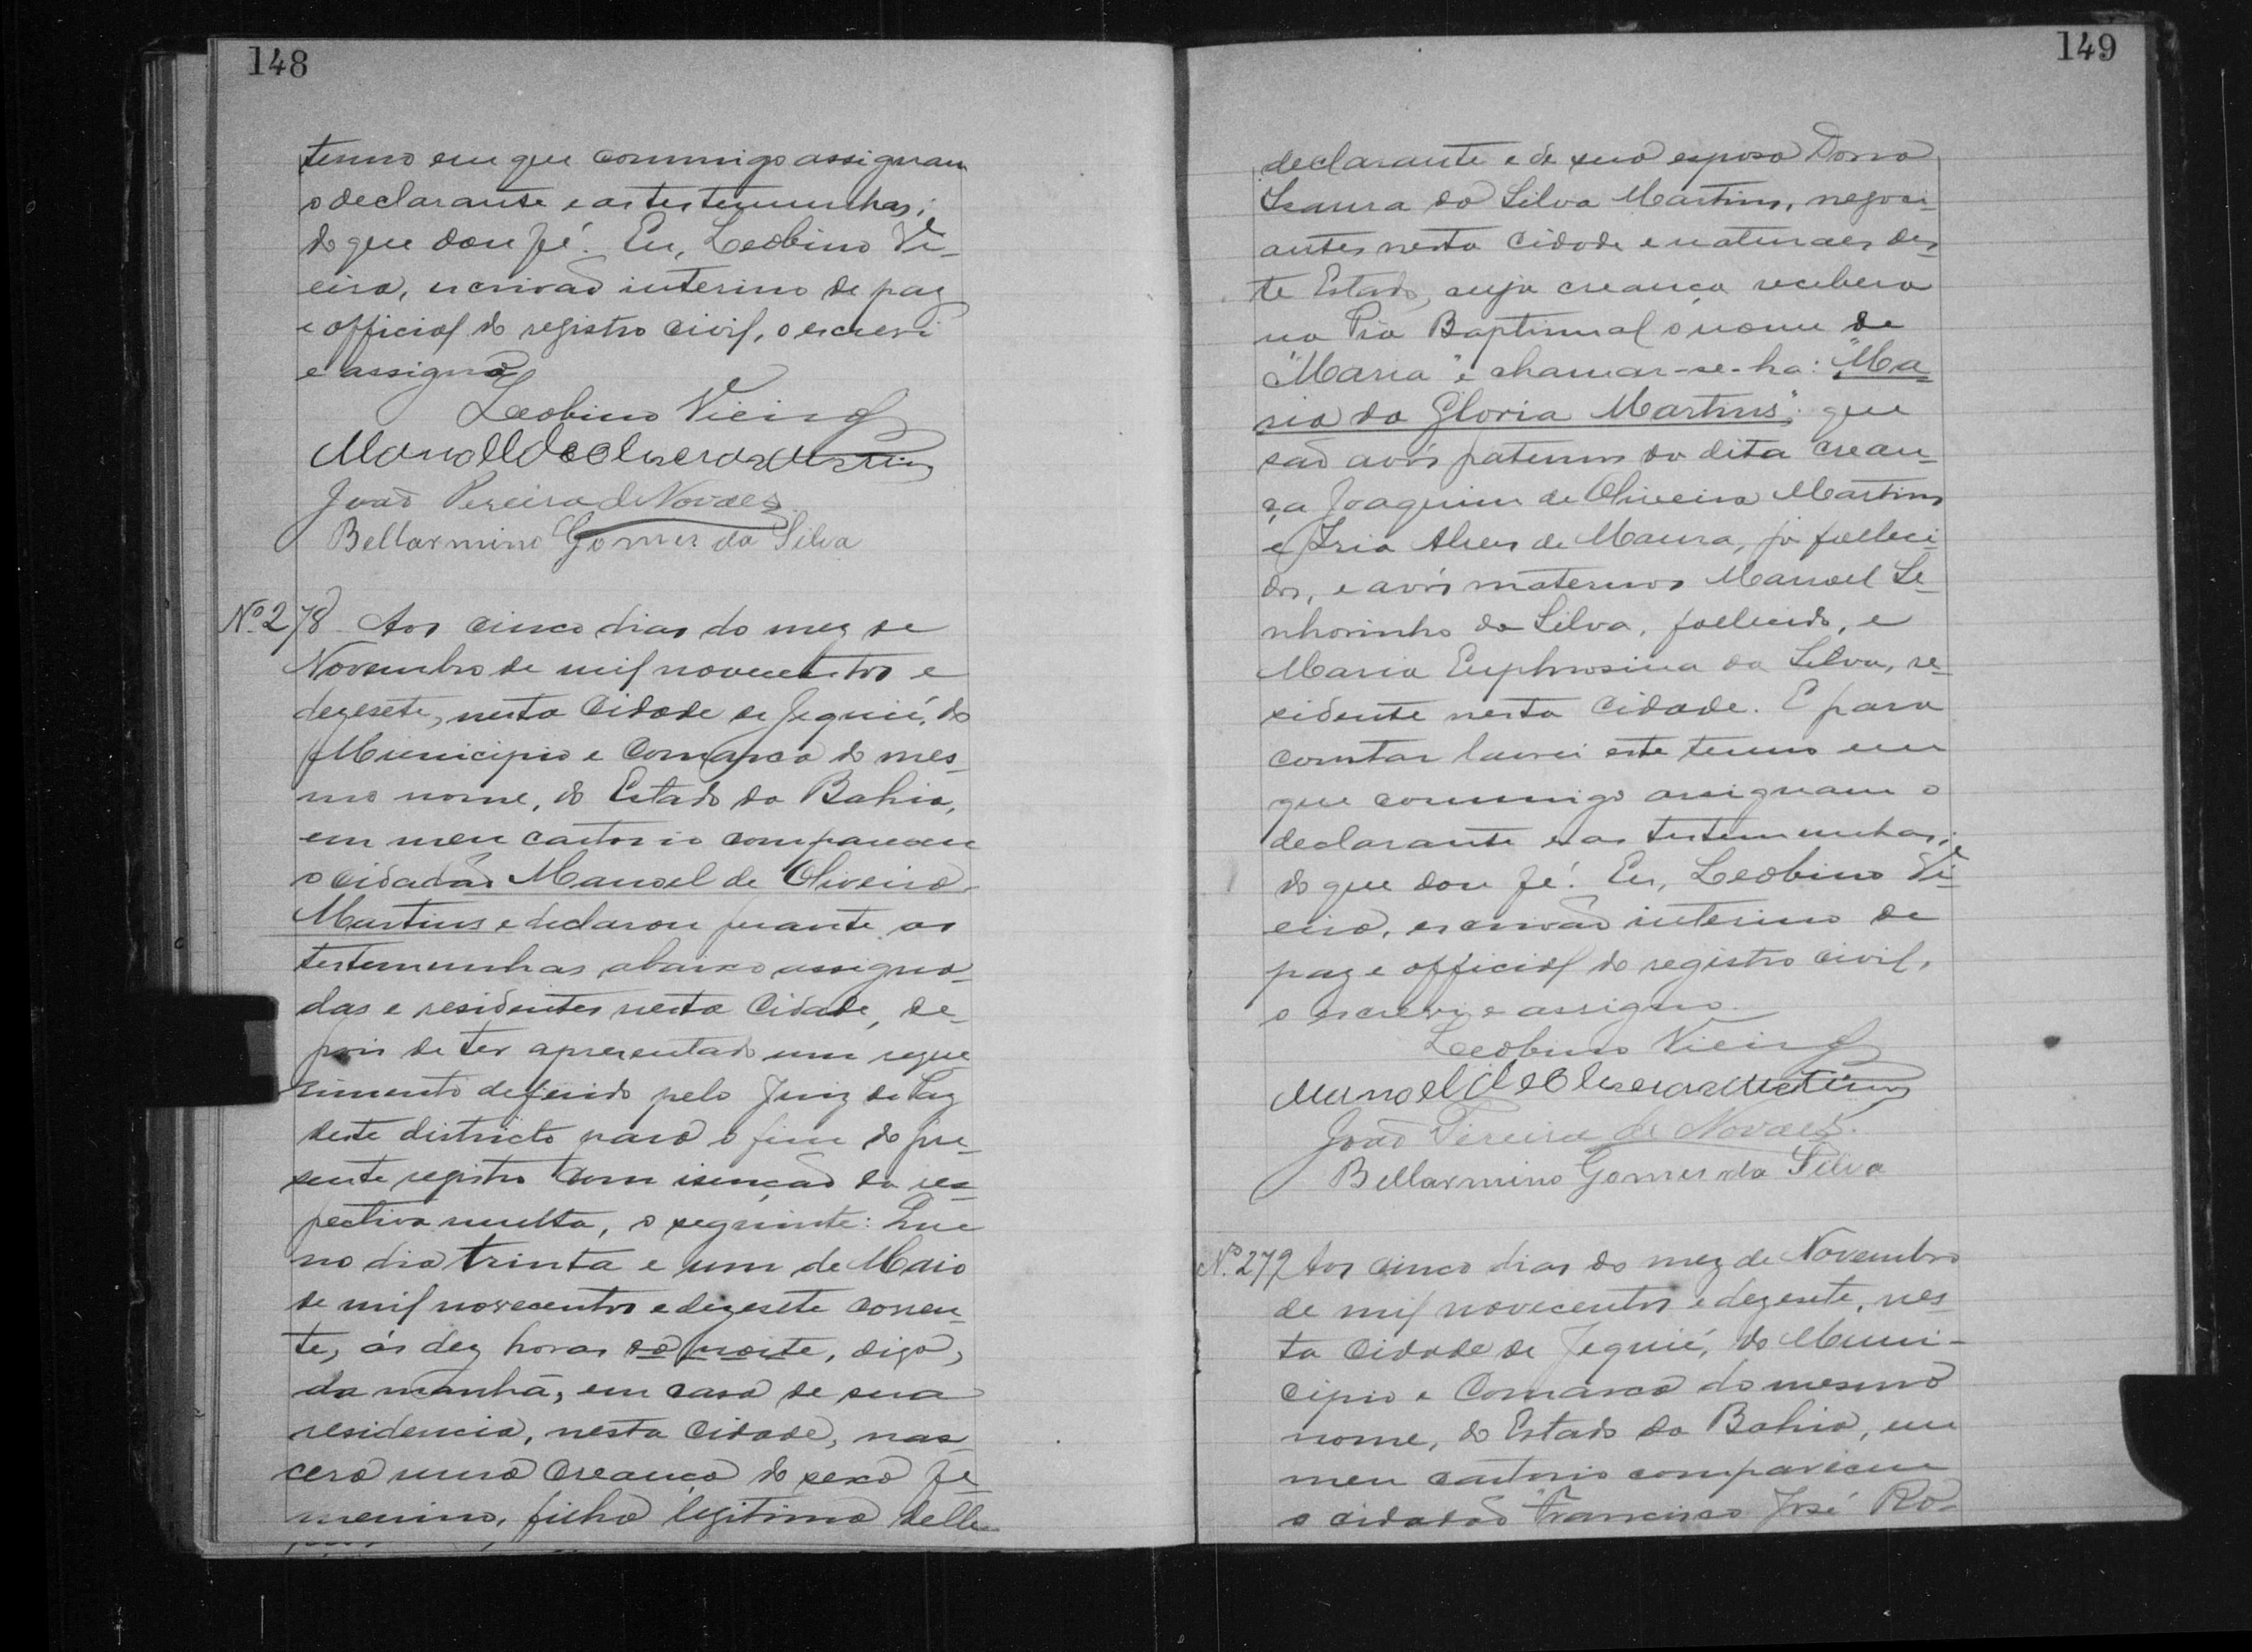 148
termo em que commigo assignam
o declarante e as testemunhas;
do que dou fé. Eu, Leobino Vi-
eira, escrivão interino de paz
e official do registro civil, o escrevi
e assigno
Leobino Vieira
Manoel de Oliveira Martins
João Pereira de Novaes
Bellarmino Gomes da Silva
Nº 278 Aos cinco dias do mez de
Novembro de mil novecentos e
dezesete, nesta Cidade de Jequié, do
Municipio e Comarca do mes-
mo nome, do Estado da Bahia,
em meu cartorio compareceu
o cidadão Manoel de Oliveira
Martins e declarou perante as
testemunhas abaixo assigna-
das e residentes nesta Cidade, de-
pois de ter apresentado um reque
rimento deferido pelo Juiz de Paz
deste districto para o fim do pre-
sente registro com isenção da res-
pectiva multa, o seguinte: Que
no dia trinta e um de Maio
de mil novecentos e dezesete corren-
te, ás dez horas da noite, digo,
da manhã, em casa de sua
residencia, nesta Cidade, nas-
cera uma creança do sexo fe-
menino, filha legitima delle
149
declarante e de sua esposa Dona
Isaura da Silva Martins, negoci-
antes nesta Cidade e naturaes des-
te Estado, cuja creança recebera
na Pia Baptismal o nome de
"Maria" e chamar-se-ha: "Ma-
ria da Gloria Martins"; que
são avós paternos da dita crean-
ça Joaquim de Oliveira Martins
e Iria Alves de Maura, já falleci-
dos, e avós maternos Manoel Se-
nhorinho da Silva, fallecido, e
Maria Euphrosina da Silva, re-
sidente nesta Cidade. E para
constar lavrei este termo em
que commigo assignam o
declarante e as testemunhas;
do que dou fé. Eu, Leobino Vi-
eira, escrivão interino de
paz e official do registro civil,
o escrevi e assigno.
Leobino Vieira
Manoel de Oliveira Martins
João Pereira de Novaes.
Bellarmino Gomes da Silva
Nº 279 Aos cinco dias do mez de Novembro
de mil novecentos e dezesete, nes-
ta Cidade de Jequié, do Muni-
cipio e Comarca do mesmo
nome, do Estado da Bahia, em
meu cartorio compareceu
o cidadão Francisco José Ro-